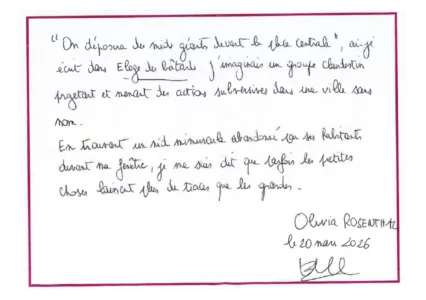 "On déposera des nids géants devant la place centrale", ai-je
écrit dans Eloge des bâtards. J'imaginais un groupe clandestin
projetant et menant des actions subversives dans une ville sans
nom.
En trouvant un nid minuscule abandonné par ses habitants
devant ma fenêtre, je me suis dit que parfois les petites
choses laissent plus de traces que les grandes.
Olivia ROSENTHAL
le 20 mars 2026